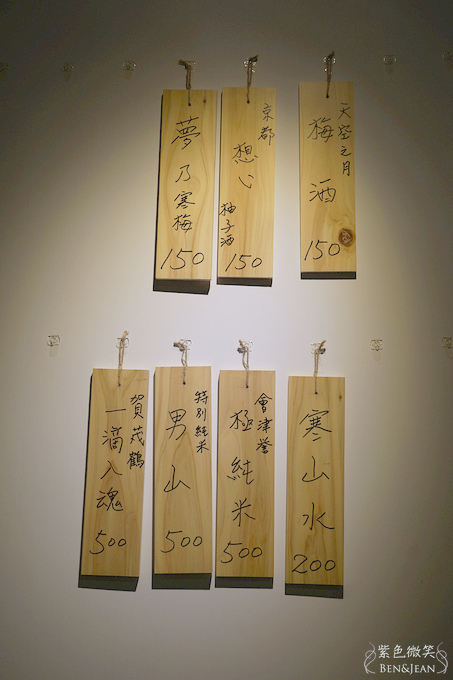 夢乃寒梅
150
京都
想心
柚子酒
150
天空之月
梅酒
150
賀茂鶴
一滴入魂
500
特別純米
男山
500
會津譽
極純米
500
寒山水
200
紫色微笑
BEN&JEAN